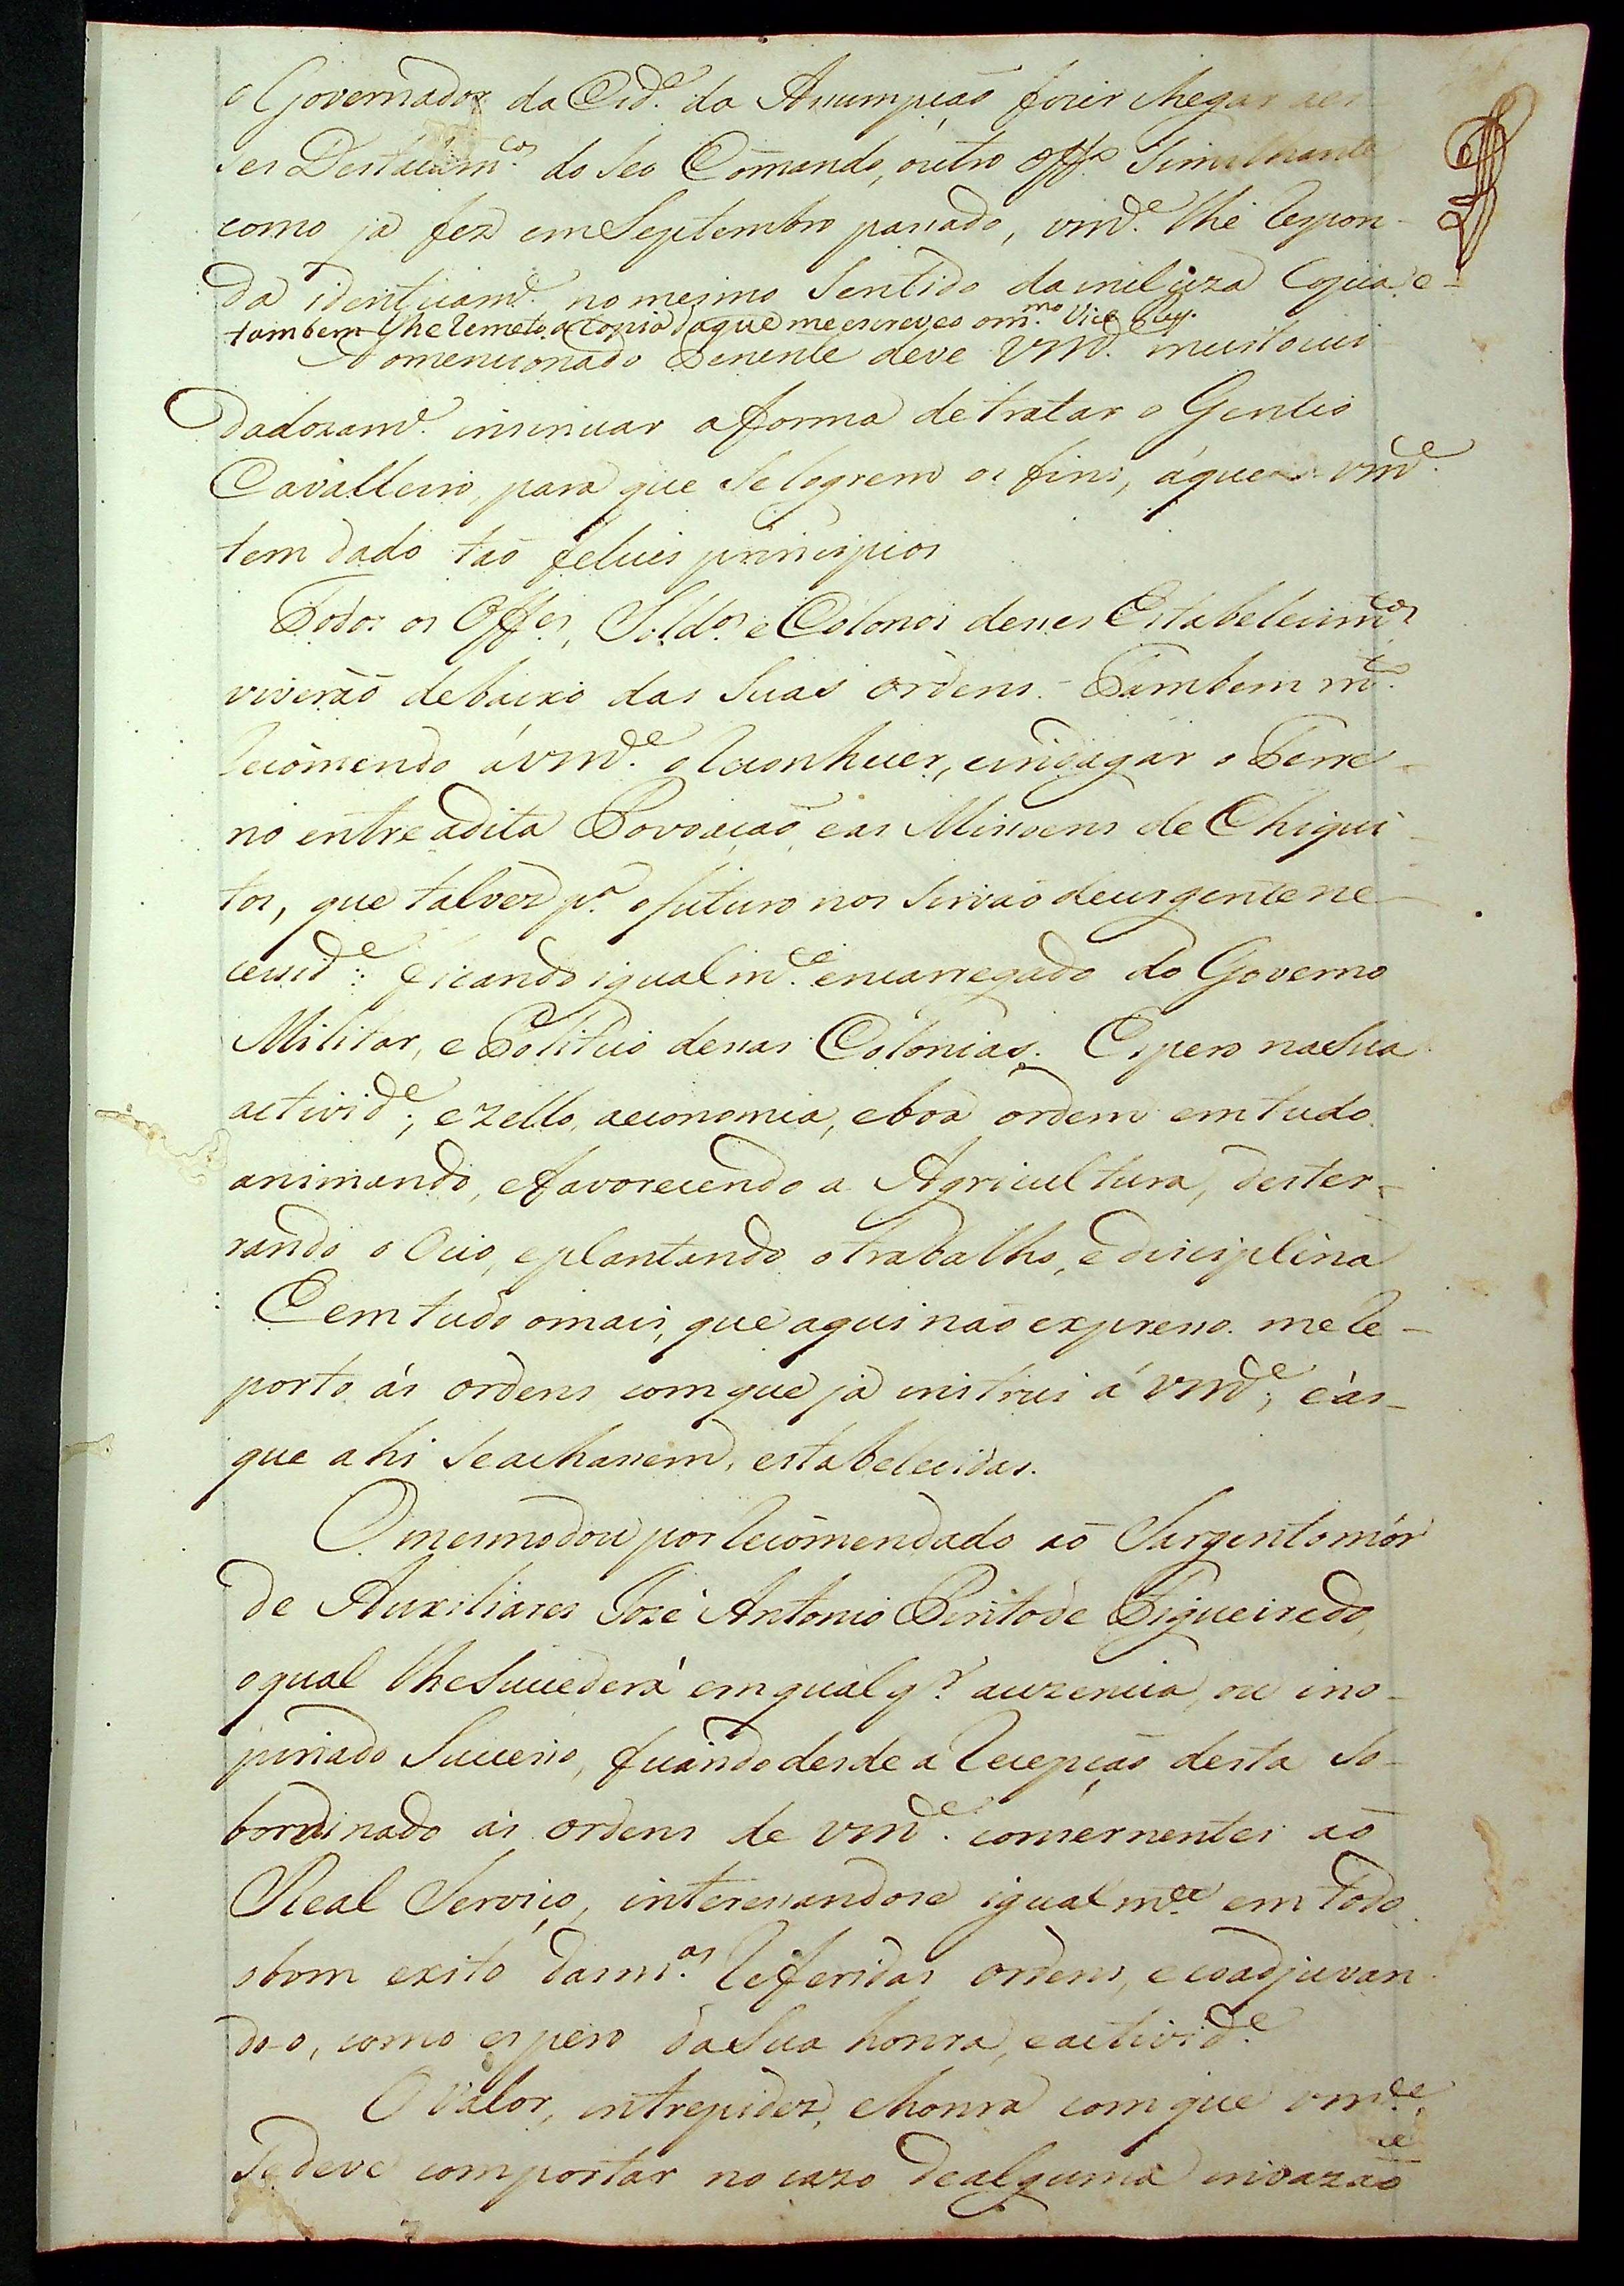 o Governador da Cid.e da Assumpção fizer chegar aes-
ses Destacam.tos do seo Cõmando, outro Off.o similhante
como ja fez em Septembro passado, vm.ce lhe respon-
da identicam.e no mesmo sentido da incluza Copia e
tambem lhe remeto a Copia da que me escreveo o m.mo Vice Rey.
Ao mencionado Tenente deve Vm.ce muito cui
dadozam.e insinuar a forma de tratar o Gentio
Cavalleiro, para que se logrem os fins, á que vm.ce
tem dado taõ felices principios
Todos os Off.es, Sold.os e Colonos desses Estabelecim.tos
viverão debaixo das suas ordens. Tambem m.to
recõmendo á Vm.ce o reconhecer, e indagár o Terre-
no entre a dita Povoação, e as Missoens de Chiqui-
tos, que talvez p.a o futuro nos sirvão de urgente ne-
cessid.e: ficando igualm.e encarregado do Governo
Militar, e Politico dessas Colonias. Espero na sua
activid.e, e zello, aeconomia, e boa ordem em tudo
animando, e favorecendo a Agricultura, dester-
rando o Ocio, e plantando o trabalho, e disciplina
E em tudo o mais, que aqui não expresso. me re-
porto ás ordens com que ja instrui á Vm.ce, e ás
que ahi se acharem, estabelecidas.
O mesmo dou por recõmendado ao Sargento mór
de Auxiliares José Antonio Pinto de Figueiredo,
o qual lhe succederá em qualq.r auzencia, ou ino-
pinado Sucesso, ficando desde a recepção desta so-
bordinado as ordens de vm.ce consernentes ao
Real Serviço, interessandose igualm.te em todo
o bom exito das m.as referidas ordens, e coadjuvan
do-o, como espero da sua honra, e activid.e
O Valor, intrepidez, e honra com que vm.ce
se deve comportar no cazo de alguma invazaõ